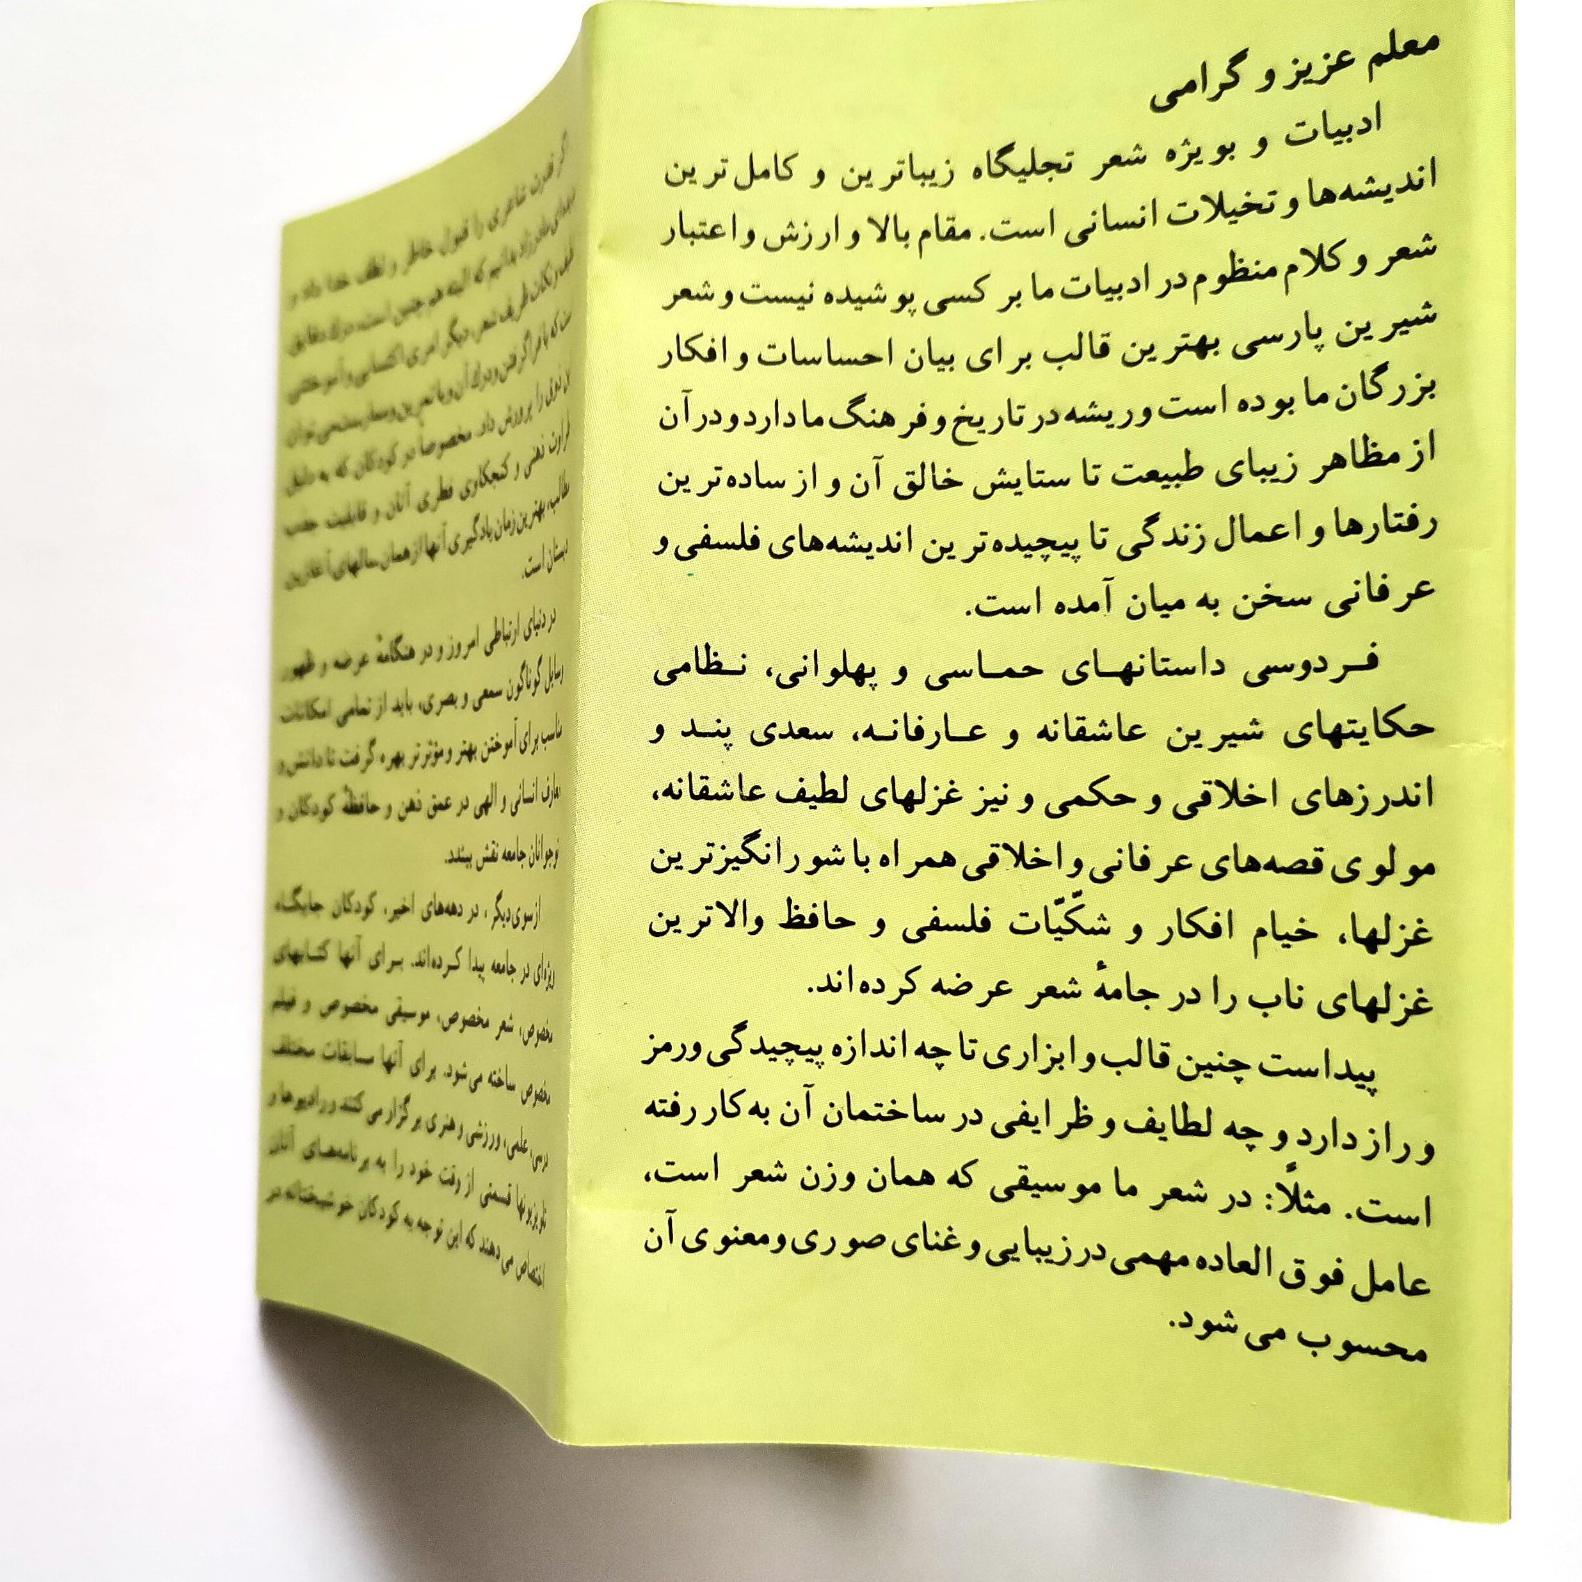 معلم عزیز و گرامی
ادبیات و بویژه شعر تجلیگاه زیباترین و کامل‌ترین
اندیشه‌ها و تخیلات انسانی است. مقام بالا و ارزش و اعتبار
شعر و کلام منظوم در ادبیات ما بر کسی پوشیده نیست و شعر
شیرین پارسی بهترین قالب برای بیان احساسات و افکار
بزرگان ما بوده است و ریشه در تاریخ و فرهنگ ما دارد و در آن
از مظاهر زیبای طبیعت تا ستایش خالق آن و از ساده‌ترین
رفتارها و اعمال زندگی تا پیچیده‌ترین اندیشه‌های فلسفی و
عرفانی سخن به میان آمده است.
فردوسی داستانهای حماسی و پهلوانی، نظامی
حکایتهای شیرین عاشقانه و عارفانه، سعدی پند و
اندرزهای اخلاقی و حکمی و نیز غزلهای لطیف عاشقانه،
مولوی قصه‌های عرفانی و اخلاقی همراه با شورانگیزترین
غزلها، خیام افکار و شکّیّات فلسفی و حافظ والاترین
غزلهای ناب را در جامهٔ شعر عرضه کرده‌اند.
پیداست چنین قالب و ابزاری تا چه اندازه پیچیدگی و رمز
و راز دارد و چه لطایف و ظرایفی در ساختمان آن به‌کار رفته
است. مثلاً: در شعر ما موسیقی که همان وزن شعر است،
عامل فوق العاده مهمی در زیبایی و غنای صوری و معنوی آن
محسوب می‌شود.
اگر قدرت شاعری را قبول خاطر و لطف خدا داد و
که البته هم چنین است، درک دقایق
ظریف شعر، دیگر امری اکتسابی و آموختنی
که با فراگرفتن و درک آن و با تمرین و ممارست می‌توان
ذوق را پرورش داد. مخصوصاً در کودکان که به دلیل
ذهنی و کنجکاوی فطری آنان و قابلیت جذب
مطالب، بهترین زمان یادگیری آنها از همان سالهای آغازین
دبستان است.
در دنیای ارتباطی امروز و در هنگامهٔ عرضه و ظهور
وسایل گوناگون سمعی و بصری، باید از تمامی امکانات
مناسب برای آموختن بهتر و مؤثرتر بهره گرفت تا دانش و
معارف انسانی و الهی در عمق ذهن و حافظهٔ کودکان و
نوجوانان جامعه نقش ببندد.
ازسوی‌دیگر، در دهه‌های اخیر، کودکان جایگاه
ویژه‌ای در جامعه پیدا کرده‌اند. برای آنها کتابهای
مخصوص، شعر مخصوص، موسیقی مخصوص و فیلم
مخصوص ساخته می‌شود. برای آنها مسابقات مختلف
درسی، علمی، ورزشی و هنری برگزار می‌کنند و رادیوها و
تلویزیونها قسمتی از وقت خود را به برنامه‌های آنان
اختصاص می‌دهند که این توجه به کودکان خوشبختانه در